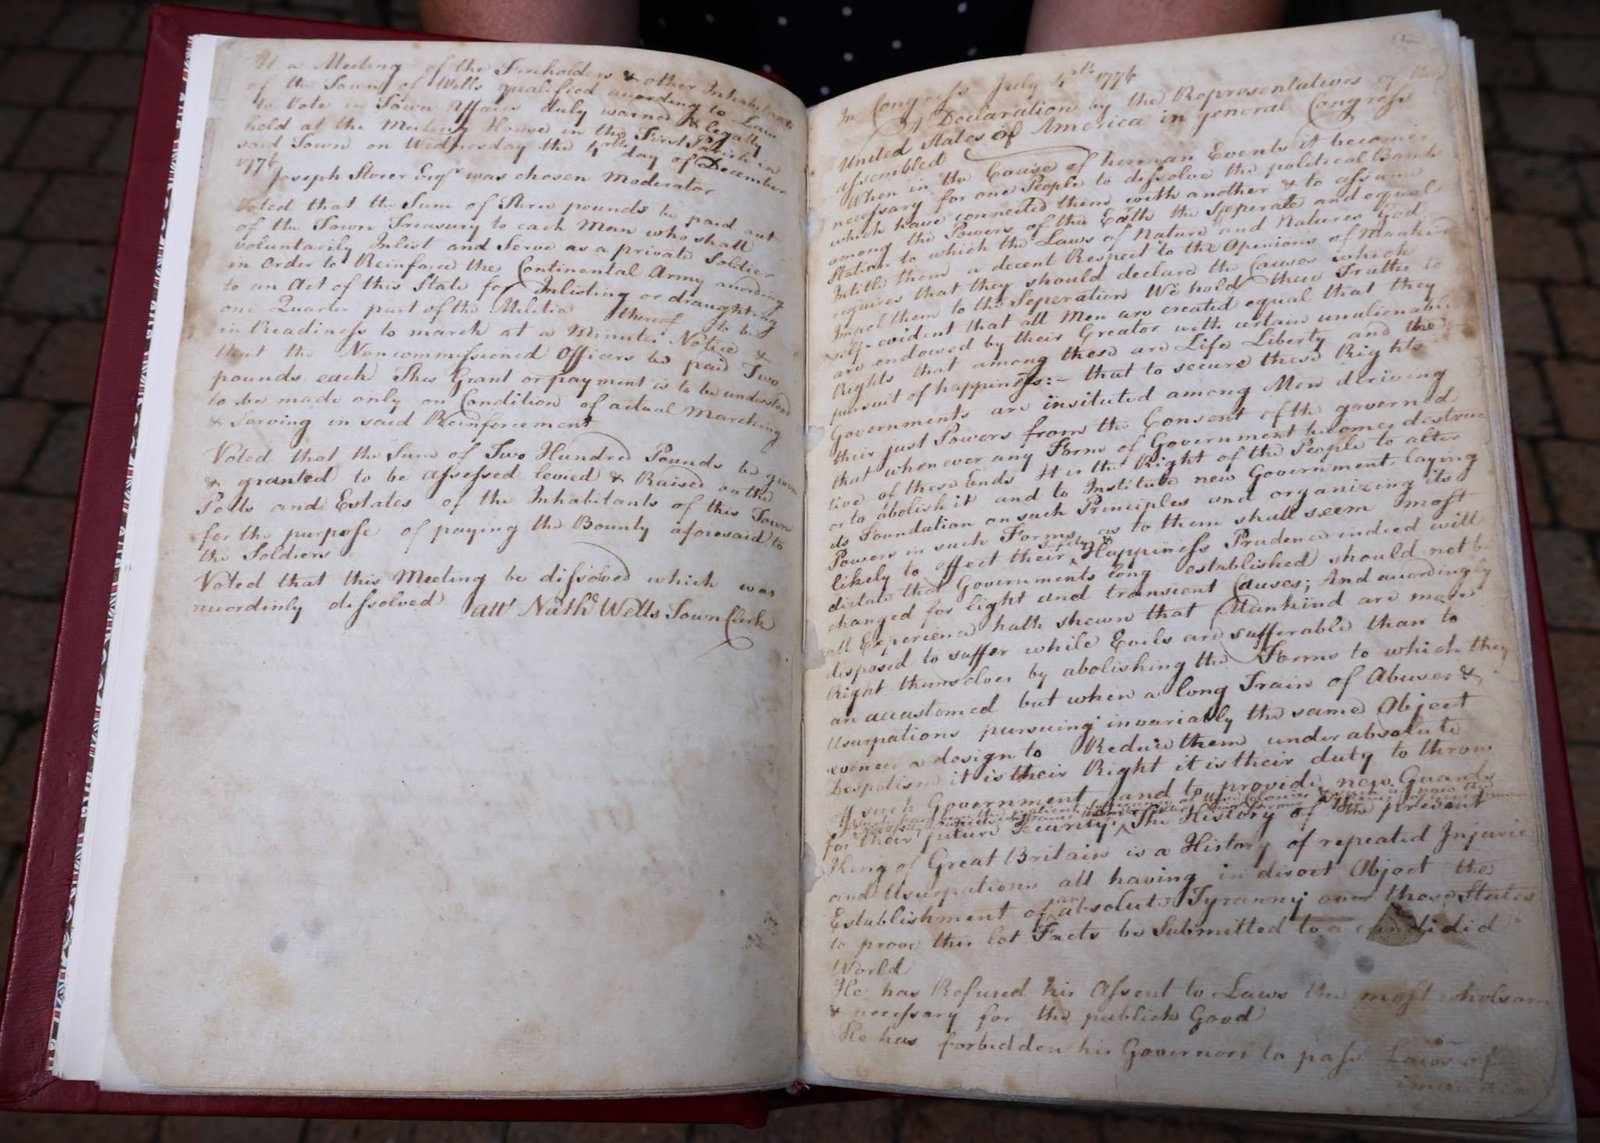 At a Meeting of the Freeholders & other Inhabitants
of the Town of Wells qualified according to Law
to Vote in Town Affairs duly warned & legally
held at the Meeting House in the First Parish in
said Town on Wednesday the 4th day of December
1776
Joseph Storer Esqr was chosen Moderator
Voted that the Sum of Three pounds be paid out
of the Town Treasury to each Man who shall
Voluntarily Inlist and Serve as a private Soldier
in Order to Reinforce the Continental Army according
to an Act of this State for Inlisting or draughting
one Quarter part of the Militia thereof to be
in Readiness to march at a Minutes Notice &
that the Noncommissioned Officers be paid Two
pounds each This Grant or payment is to be understood
to be made only on Condition of actual Marching
& Serving in said Reinforcement
Voted that the Sum of Two Hundred Pounds be given
& granted to be assessed levied & Raised on the
Polls and Estates of the Inhabitants of this Town
for the purpose of paying the Bounty aforesaid to
the Soldiers
Voted that this Meeting be dissolved which was
accordinly dissolved
attr Nathl Wells Town Clerk
In Congress July 4th 1776
A Declaration by the Representatives of the
United States of America in general Congress
assembled
When in the Course of human Events it becomes
necessary for one People to dissolve the political Bands
which have connected them with another & to assume
among the Powers of the Earth the Seperate and equal
Station to which the Laws of Nature and Natures God
Intitle them a decent Respect to the Opinions of Mankind
requires that they should declare the Causes which
Impel them to the Seperation We hold these Truths to
be self-evident that all Men are created equal that they
are endowed by their Creator with certain unalienable
Rights that among these are Life Liberty and the
pursuit of happiness:- that to secure these Rights
Governments are instituted among Men deriving
their just Powers from the Consent of the governed
that whenever any Form of Government becomes destruc
tive of these Ends It is the Right of the People to alter
or to abolish it and to Institute new Government, laying
its Foundation on such Principles and organizing its
Powers in such Forms as to them shall seem most
likely to effect their Safety & Happiness Prudence indeed will
dictate that Governments long established should not be
changed for light and transient Causes; And accordingly
all Experience hath shewn that Mankind are more
disposed to suffer while Evils are sufferable than to
Right themselves by abolishing the Forms to which they
are accustomed but when a long Train of Abuses &
Usurpations pursuing invariably the same Object
evinces a design to Reduce them under absolute
Despotism it is their Right it is their duty to throw
off such Government and to provide new Guards
for their future Security. The History of the present
King of Great Britain is a History of repeated Injuries
and Usurpations all having in direct Object the
Establishment of an absolute Tyranny over these States
to prove this let Facts be Submitted to a candidid
World
He has Refused his Assent to Laws the most wholsom
& necessary for the publick Good
He has forbidden his Governors to pass Laws of